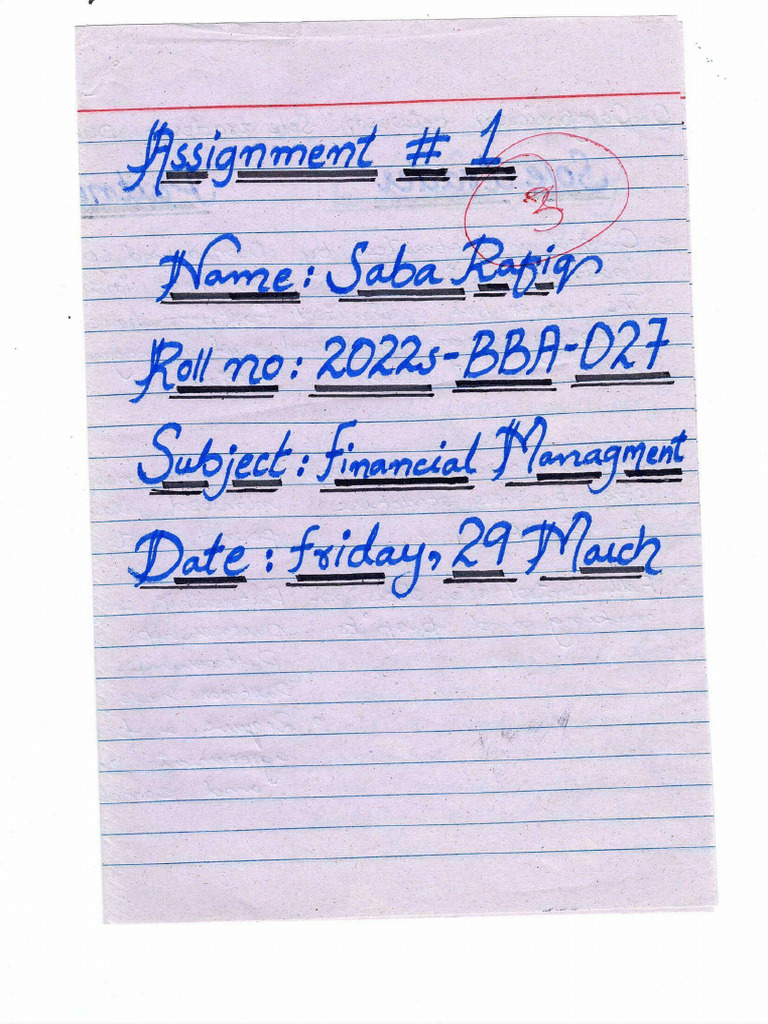 Assignment # 1
3
Name: Saba Rafiq
Roll no: 2022s-BBA-027
Subject: financial Managment
Date: friday, 29 March